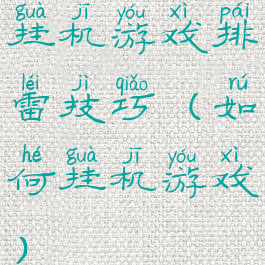 guà jī yóu xì pái
挂机游戏排
léi jì qiǎo rú
雷技巧(如
hé guà jī yóu xì
何挂机游戏
)